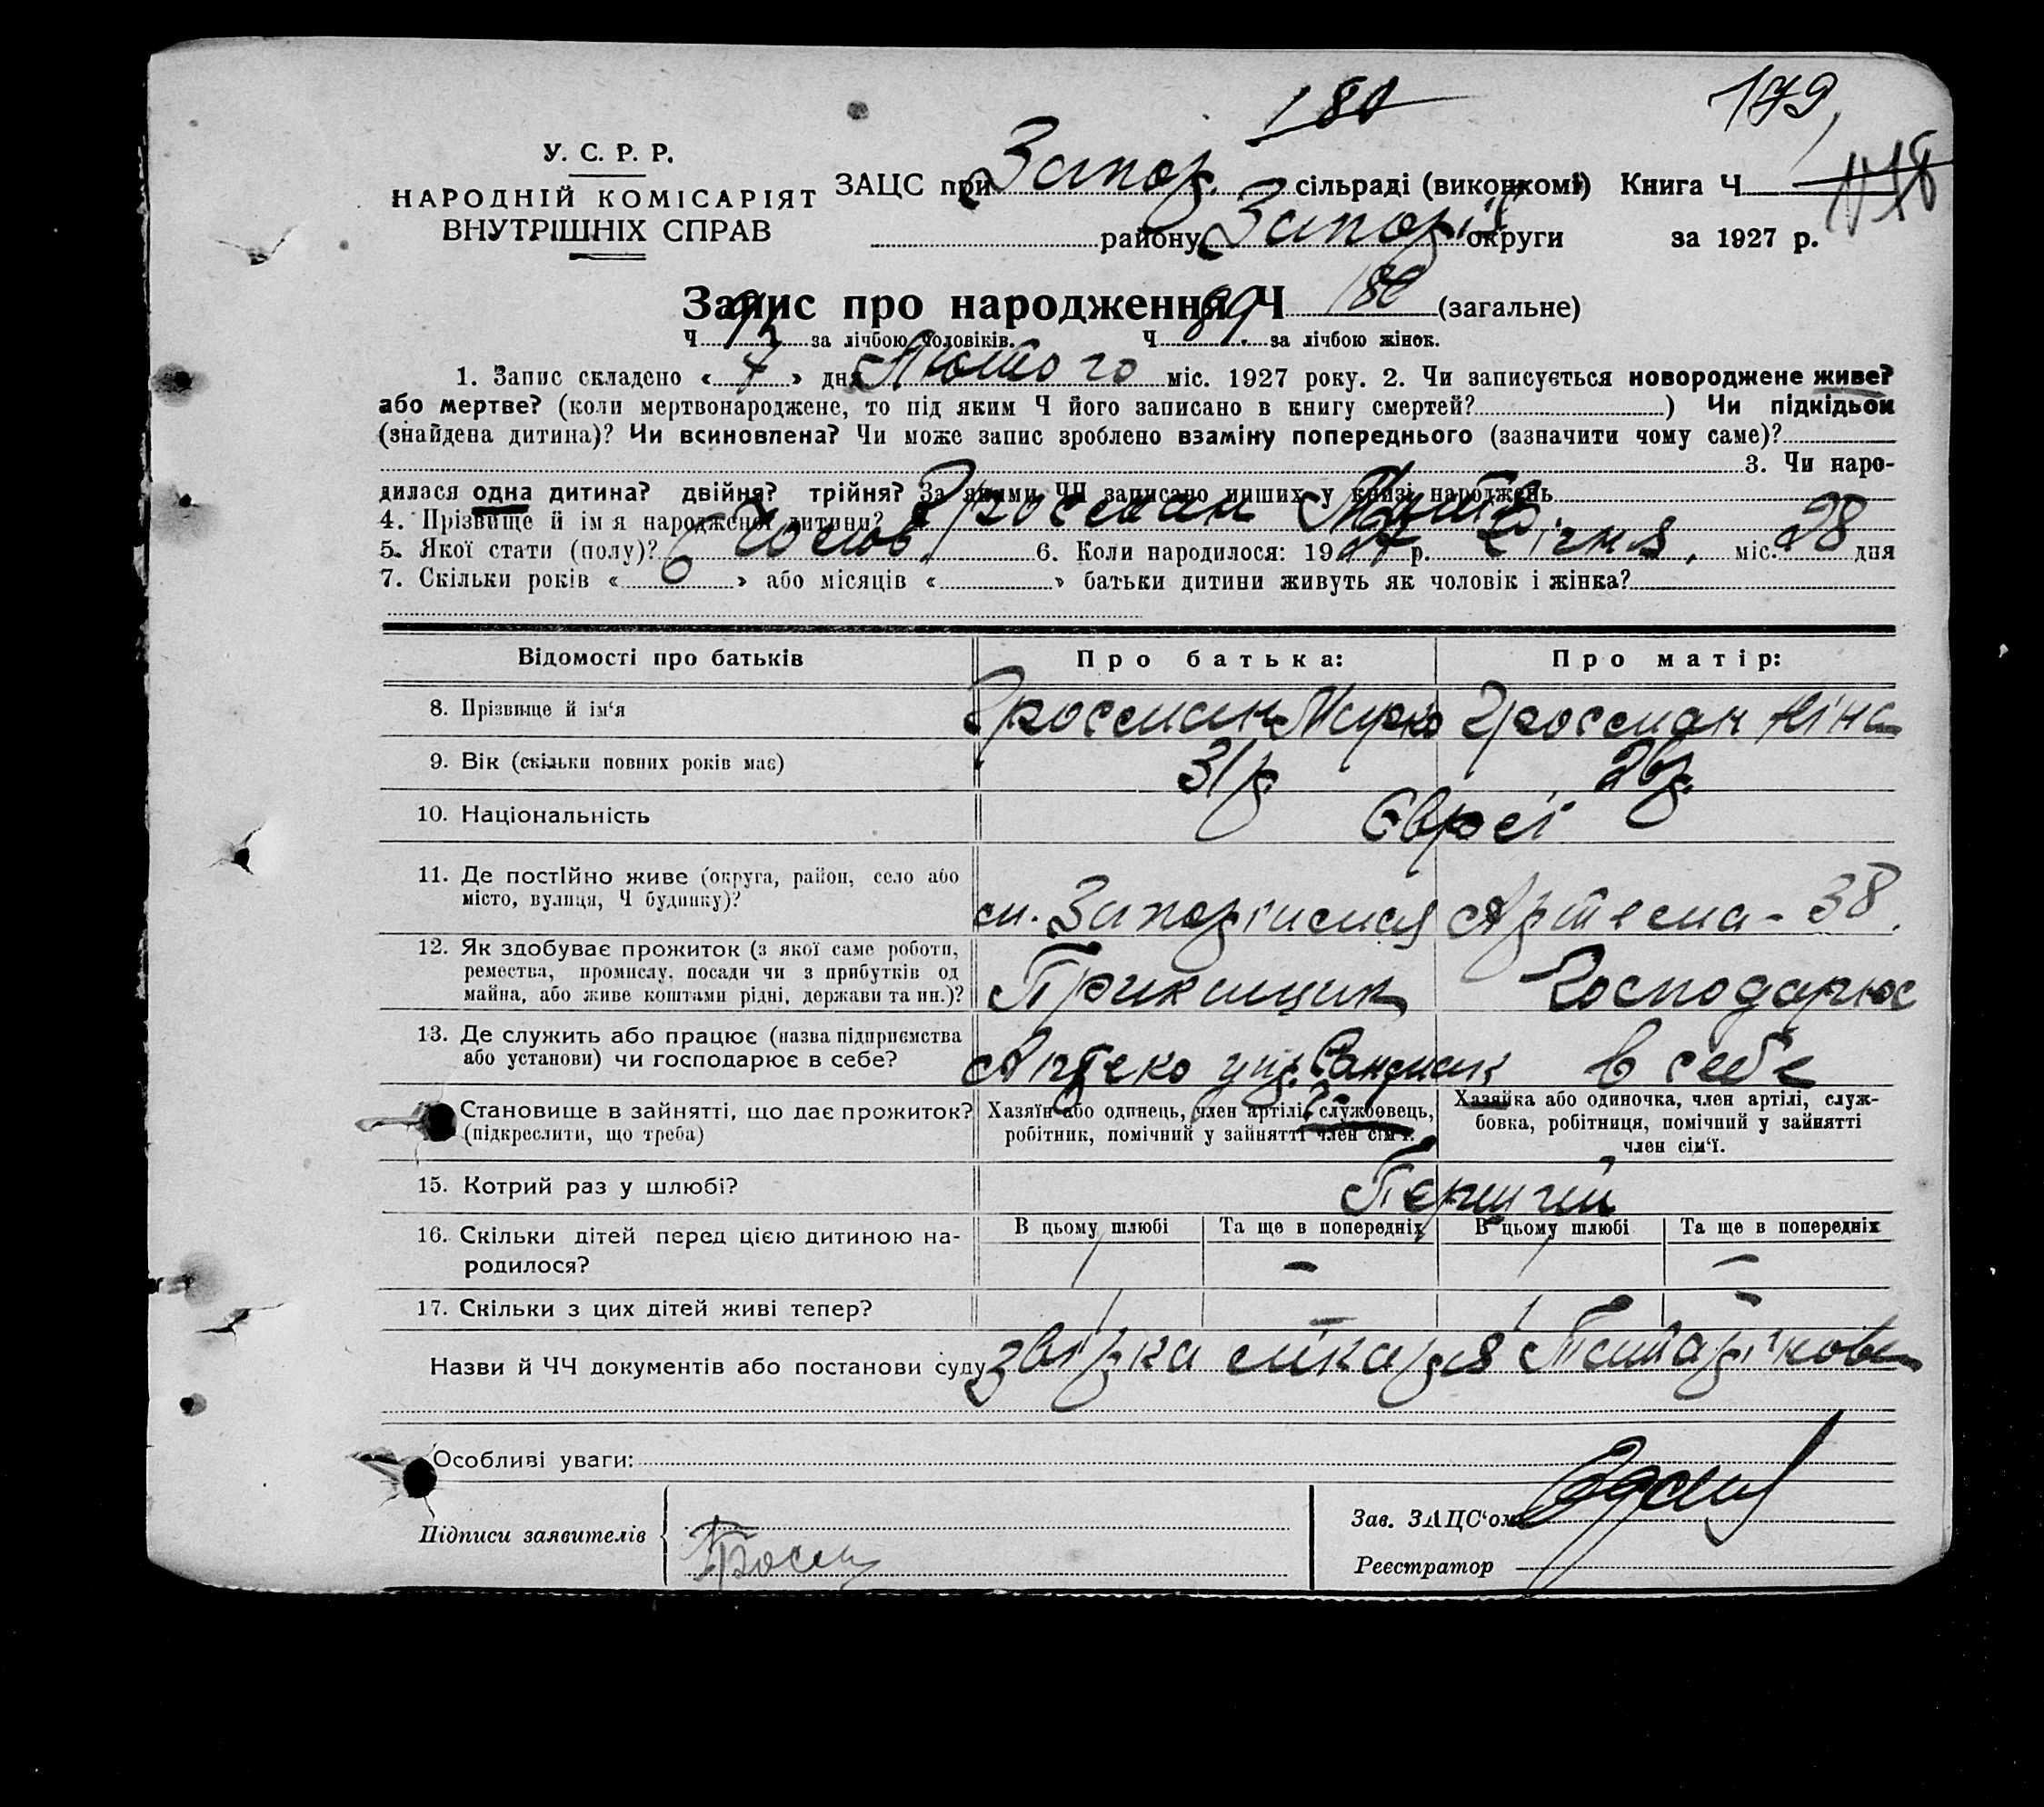 180
179
У. С. Р. Р.
НАРОДНІЙ КОМІСАРІЯТ
ВНУТРІШНІХ СПРАВ
ЗАЦС при Запор. сільраді (виконкомі) Книга Ч
району Запоріз округи за 1927 р.
Запис про народження Ч 180 (загальне)
Ч 91 за лічбою чоловіків. Ч 89 за лічбою жінок.
1. Запис складено «7» дня Лютого міс. 1927 року. 2. Чи записується новороджене живе?
або мертве? (коли мертвонароджене, то під яким Ч його записано в книгу смертей?) Чи підкідьок
(знайдена дитина)? Чи всиновлена? Чи може запис зроблено взаміну попереднього (зазначити чому саме)?
3. Чи наро-
дилася одна дитина? двійня? трійня? За якими ЧЧ записано инших у книзі народжень
4. Прізвище й імя народженої дитини? Гроссман
5. Якої стати (полу)? Чолов. 6. Коли народилося: 1927 р. Січня, міс. 28 дня
7. Скільки років «6» або місяців « » батьки дитини живуть як чоловік і жінка?
Відомості про батьків Про батька: Про матір:
8. Прізвище й ім'я Гроссман Марко Гроссман Ніна
9. Вік (скільки повних років має) 31 р. 26 р.
10. Національність Євреї
11. Де постійно живе (округа, район, село або
місто, вулиця, Ч будинку)? м. Запоріжжя Артема - 38.
12. Як здобуває прожиток (з якої саме роботи,
ремества, промислу, посади чи з прибутків од
майна, або живе коштами рідні, держави та ин.)? Прикащик Господарює
13. Де служить або працює (назва підприємства
або установи) чи господарює в себе? в себе
Становище в зайнятті, що дає прожиток?
(підкреслити, що треба)
Хазяїн або одинець, член артілі, службовець,
робітник, помічний у зайнятті член сім'ї.
Хазяйка або одиночка, член артілі, служ-
бовка, робітниця, помічний у зайнятті
член сім'ї.
15. Котрий раз у шлюбі? Перший
В цьому шлюбі Та ще в попередніх В цьому шлюбі Та ще в попередніх
16. Скільки дітей перед цією дитиною на-
родилося? 1 — 1 —
17. Скільки з цих дітей живі тепер? 1 — 1 —
Назви й ЧЧ документів або постанови суду звірка лікаря
Особливі уваги:
Підписи заявителів
Зав. ЗАЦС'ом
Реєстратор